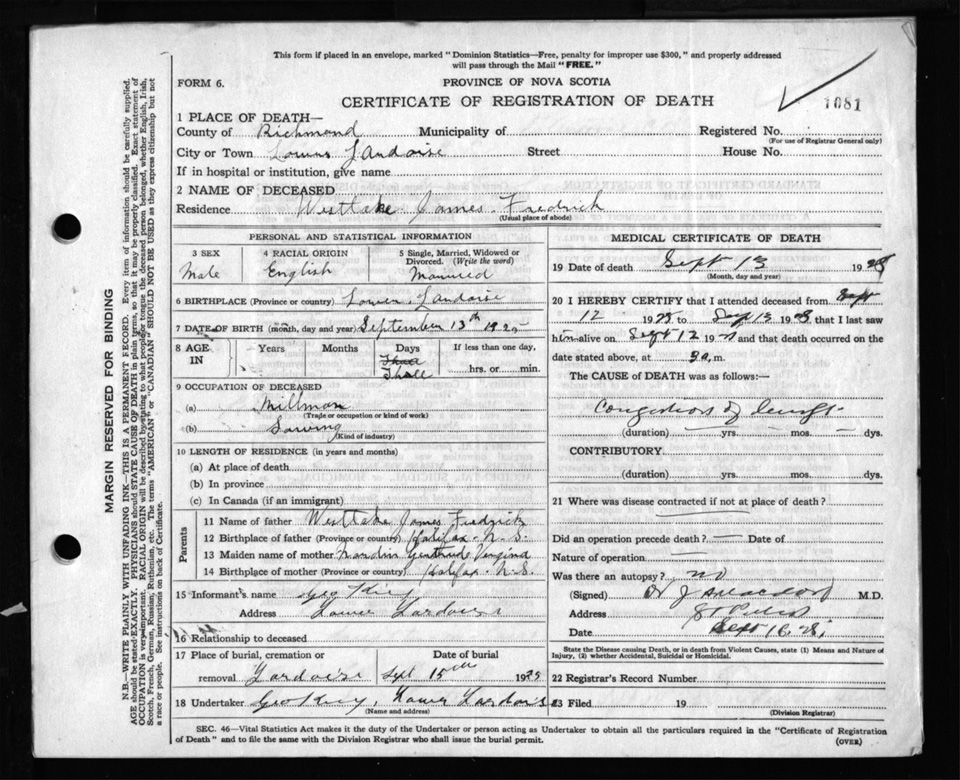 This form if placed in an envelope, marked "Dominion Statistics—Free, penalty for improper use $300," and properly addressed
will pass through the Mail "FREE."
FORM 6.
PROVINCE OF NOVA SCOTIA
CERTIFICATE OF REGISTRATION OF DEATH
1081
1 PLACE OF DEATH—
County of Richmond Municipality of Registered No.
(For use of Registrar General only)
City or Town Street House No.
If in hospital or institution, give name
2 NAME OF DECEASED
Residence Westlake James Fredrick
(Usual place of abode)
PERSONAL AND STATISTICAL INFORMATION
3 SEX
Male
4 RACIAL ORIGIN
English
5 Single, Married, Widowed or
Divorced. (Write the word)
Married
6 BIRTHPLACE (Province or country) Lower
7 DATE OF BIRTH (month, day and year) September 13th
8 AGE
IN
Years Months Days If less than one day,
hrs. or min.
9 OCCUPATION OF DECEASED
(a) Millman
(Trade or occupation or kind of work)
(b) Sawing
(Kind of industry)
10 LENGTH OF RESIDENCE (in years and months)
(a) At place of death
(b) In province
(c) In Canada (if an immigrant)
Parents
11 Name of father Westlake James Fredrick
12 Birthplace of father (Province or country) Halifax - N-S.
13 Maiden name of mother Gertrude
14 Birthplace of mother (Province or country) Halifax - N-S.
15 Informant's name Geo
Address Lower
16 Relationship to deceased
17 Place of burial, cremation or Date of burial
removal Sept 15th 19
18 Undertaker Geo Lower
(Name and address)
MEDICAL CERTIFICATE OF DEATH
19 Date of death Sept 13 1928
(Month, day and year)
20 I HEREBY CERTIFY that I attended deceased from Sept
12 1928 to Sept 13 1928 that I last saw
him alive on Sept 12 19 and that death occurred on the
date stated above, at 3 a. m.
The CAUSE of DEATH was as follows:—
Congestion of lungs
(duration) — yrs. — mos. — dys.
CONTRIBUTORY.
(duration) yrs. mos. dys.
21 Where was disease contracted if not at place of death?
—
Did an operation precede death? — Date of
Nature of operation —
Was there an autopsy? no
(Signed) M.D.
Address St Peters
Date Sept 16. 28.
State the Disease causing Death, or in death from Violent Causes, state (1) Means and Nature of
Injury, (2) whether Accidental, Suicidal or Homicidal.
22 Registrar's Record Number
23 Filed 19
(Division Registrar)
SEC. 46—Vital Statistics Act makes it the duty of the Undertaker or person acting as Undertaker to obtain all the particulars required in the "Certificate of Registration
of Death" and to file the same with the Division Registrar who shall issue the burial permit.
(OVER)
MARGIN RESERVED FOR BINDING
N.B.—WRITE PLAINLY WITH UNFADING INK—THIS IS A PERMANENT RECORD. Every item of information should be carefully supplied.
AGE should be stated EXACTLY. PHYSICIANS should STATE CAUSE OF DEATH in plain terms, so that it may be properly classified. Exact statement of
OCCUPATION is very important. RACIAL ORIGIN will be described by stating to what people or tongue the deceased person belonged, whether English, Irish,
Scotch, French, German, Russian, Ruthenian, etc. The terms "AMERICAN" or "CANADIAN" SHOULD NOT BE USED as they express citizenship but not
a race or people. See instructions on back of Certificate.